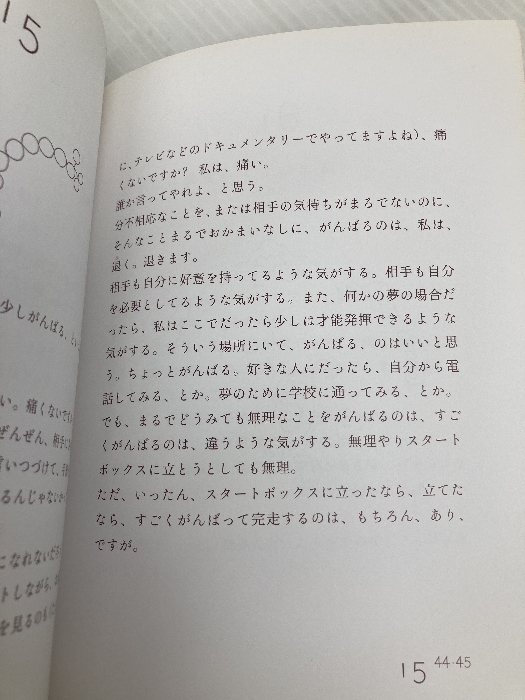 15
少しがんばる、とい
い。痛くないです
ぜんぜん、相手に
言いつづけて、
るんじゃないか
になれないだろ
トしながら、
を見るのも
に、テレビなどのドキュメンタリーでやってますよね)、痛
くないですか? 私は、痛い。
誰か言ってやれよ、と思う。
分不相応なことを、または相手の気持ちがまるでないのに、
そんなことまるでおかまいなしに、がんばるのは、私は、
退く。退きます。
相手も自分に好意を持ってるような気がする。相手も自分
を必要としてるような気がする。また、何かの夢の場合だ
ったら、私はここでだったら少しは才能発揮できるような
気がする。そういう場所にいて、がんばる、のはいいと思
う。ちょっとがんばる。好きな人にだったら、自分から電
話してみる、とか。夢のために学校に通ってみる、とか。
でも、まるでどうみても無理なことをがんばるのは、すご
くがんばるのは、違うような気がする。無理やりスタート
ボックスに立とうとしても無理。
ただ、いったん、スタートボックスに立ったなら、立てた
なら、すごくがんばって完走するのは、もちろん、あり、
ですが。
15 44-45